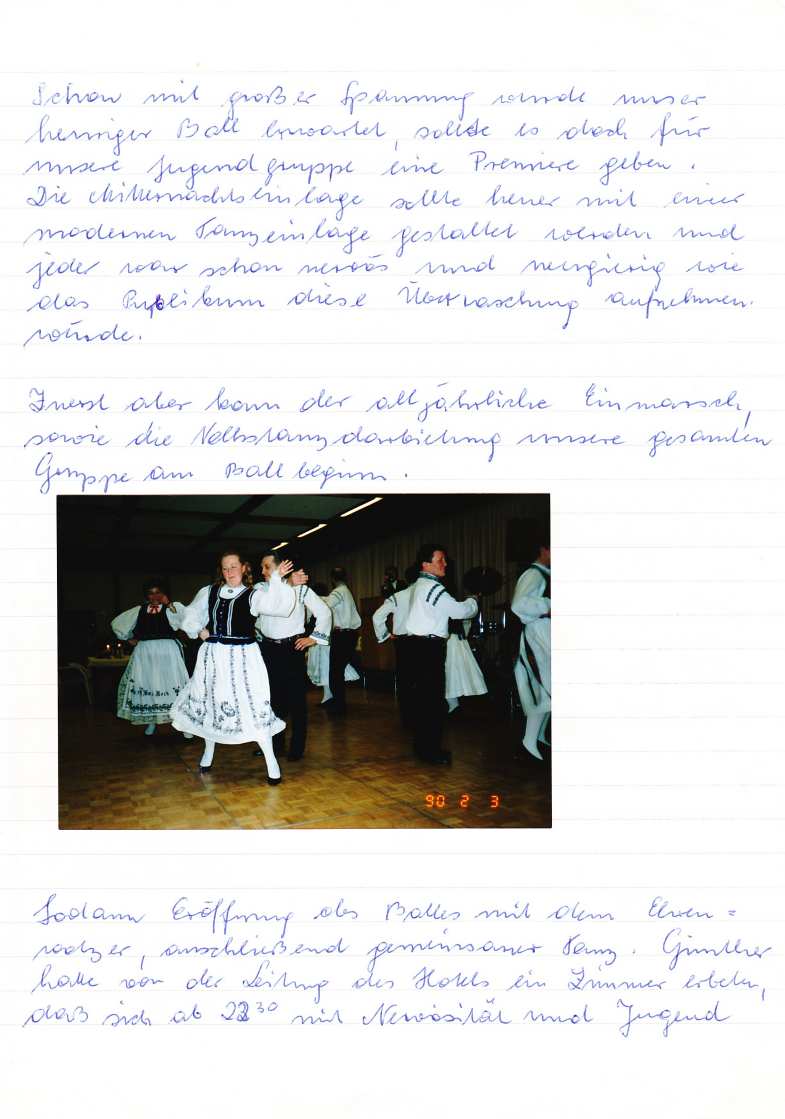 Schon mit großer Spannung wurde unser
heuriger Ball erwartet, sollte es doch für
unsere Jugendgruppe eine Premiere geben.
Die Mitternachtseinlage sollte heuer mit einer
modernen Tanzeinlage gestaltet werden und
jeder war schon nervös und neugierig wie
das Publikum diese Überraschung aufnehmen.
würde.
Zuerst aber kam der alljährliche Einmarsch,
sowie die Volkstanzdarbietung unsere gesamten
Gruppe am Ballbeginn.
90 2 3
Sodann Eröffnung des Balles mit dem Ehren=
walzer, anschließend gemeinsamer Tanz. Günther
hatte von der Leitung des Hotels ein Zimmer erbeten,
daß sich ab 22³⁰ mit Nervösität und Jugend